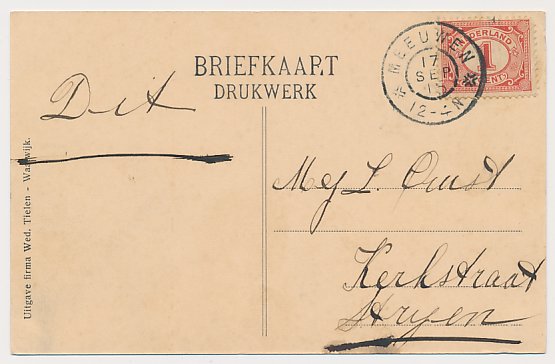 BRIEFKAART
DRUKWERK
MEEUWEN
17
SEP
12-4N
NEDERLAND
1
CENT
Dit
Mej L. Oust
Kerkstraat
Stryen
Uitgave firma Wed. Tielen - Waalwijk.